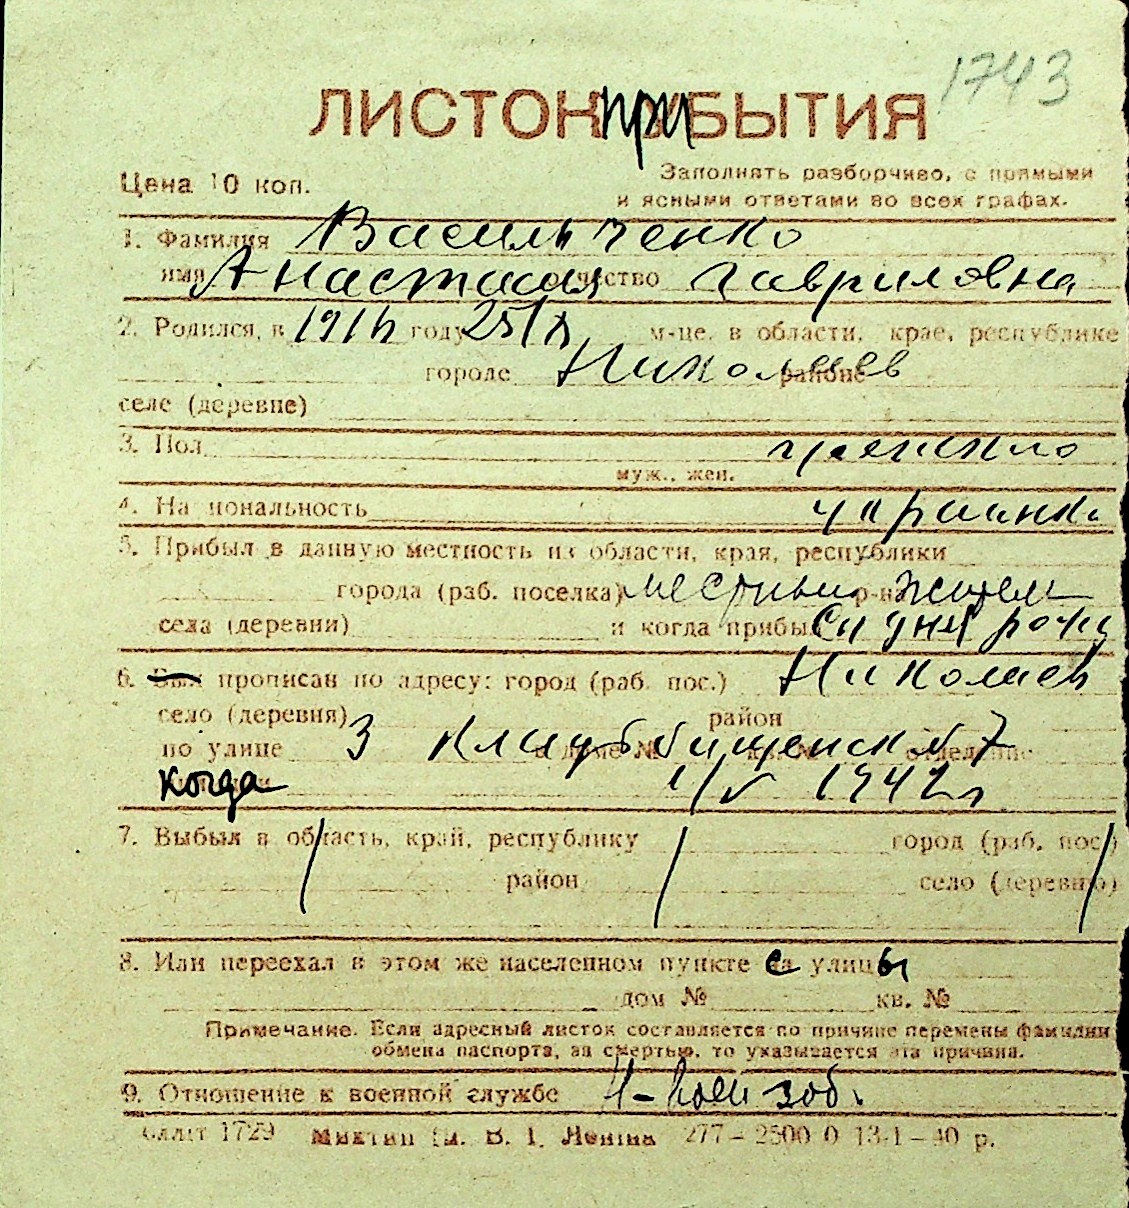 1743
ЛИСТОК ПРИБЫТИЯ
Цена 10 коп.
Заполнять разборчиво, с прямыми
и ясными ответами во всех графах.
1. Фамилия Васильченко
имя Анастасия отчество Гавриловна
2. Родился в году 25/X м-це, в области, крае, республике
городе Николаев районе
селе (деревне)
3. Пол женско
муж., жен.
4. Национальность украинк.
5. Прибыл в данную местность из области, края, республики
города (раб. поселка) местный р-на жител
села (деревни) и когда прибыл Со дня рожд
6. Был прописан по адресу: город (раб. пос.) Николаев
село (деревня) район
по улице 3 дом № кв. № 7 отделение
когда 1/V 1942 г.
7. Выбыл в область, край, республику город (раб. пос.)
район село (деревню)
8. Или переехал в этом же населенном пункте с улицы
дом № кв. №
Примечание. Если адресный листок составляется по причине перемены фамилии
обмена паспорта, за смертью, то указывается эта причина.
9. Отношение к военной службе Н-воен зоб.
1729 В. І. Леніна 277 – 2500 0 13-1–40 р.